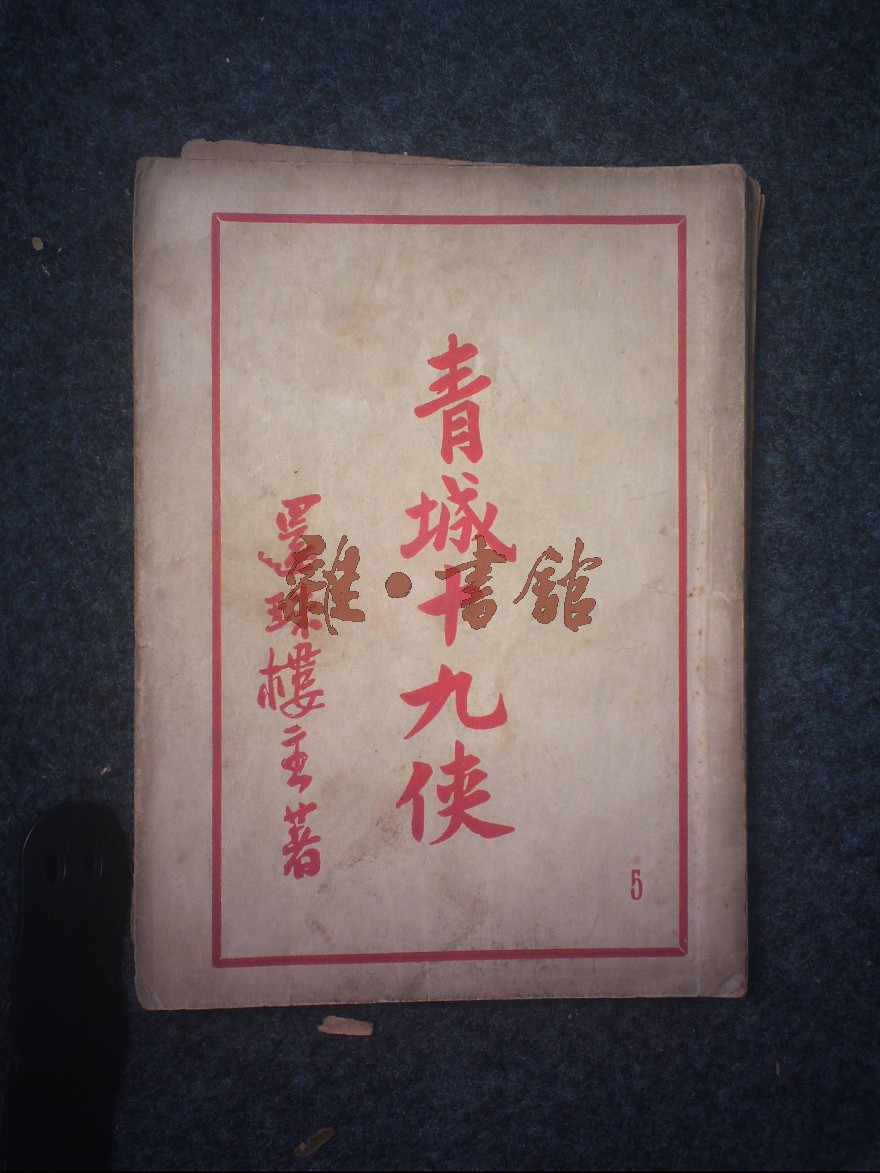 青城十九侠
還珠樓主著
5
雜·書館